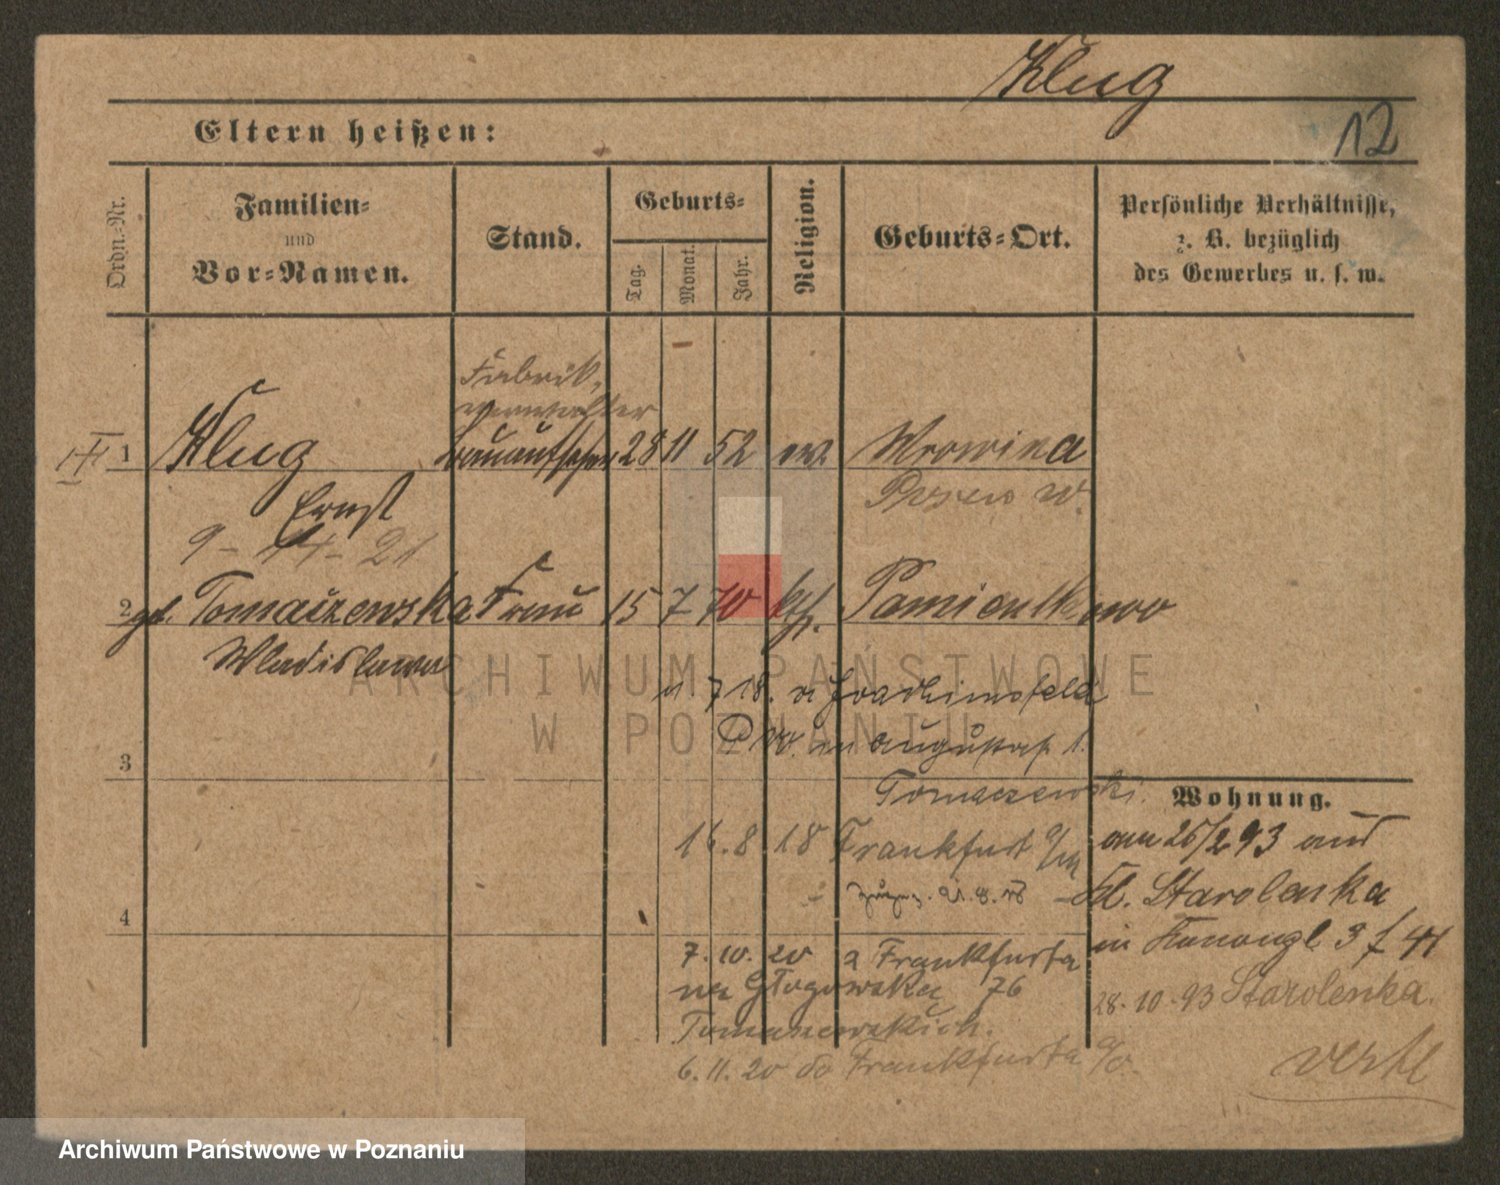 Klug
12
Eltern heißen:
Ordn.-Nr.
Familien-
und
Vor-Namen.
Stand.
Geburts-
Tag.
Monat.
Jahr.
Religion.
Geburts-Ort.
Persönliche Verhältnisse,
z. B. bezüglich
des Gewerbes u. s. w.
Fabrik
verwalter
III
1 Klug 28 11 52 ev. Mrowina
Ernst
Posen W.
9 - 14 - 21
2 gb. Tomaszewska Frau 15 7 70 kth. Pamientkowo
Wladislawa
ARCHIWUM PAŃSTWOWE
W POZNANIU
7 18. Joachimsfeld
in Augustastr. 1.
3
Tomaczewski.
Wohnung.
16.8.18 Frankfurt a/M
am 26/2 93 aus
Kl. Starolenka
4
in 3 f 41
7. 10. 20 z Frankfurta
na Głogowska 76
28-10-93 Starolenka.
6. 11. 20 do Frankfurta a/O.
verte
Archiwum Państwowe w Poznaniu